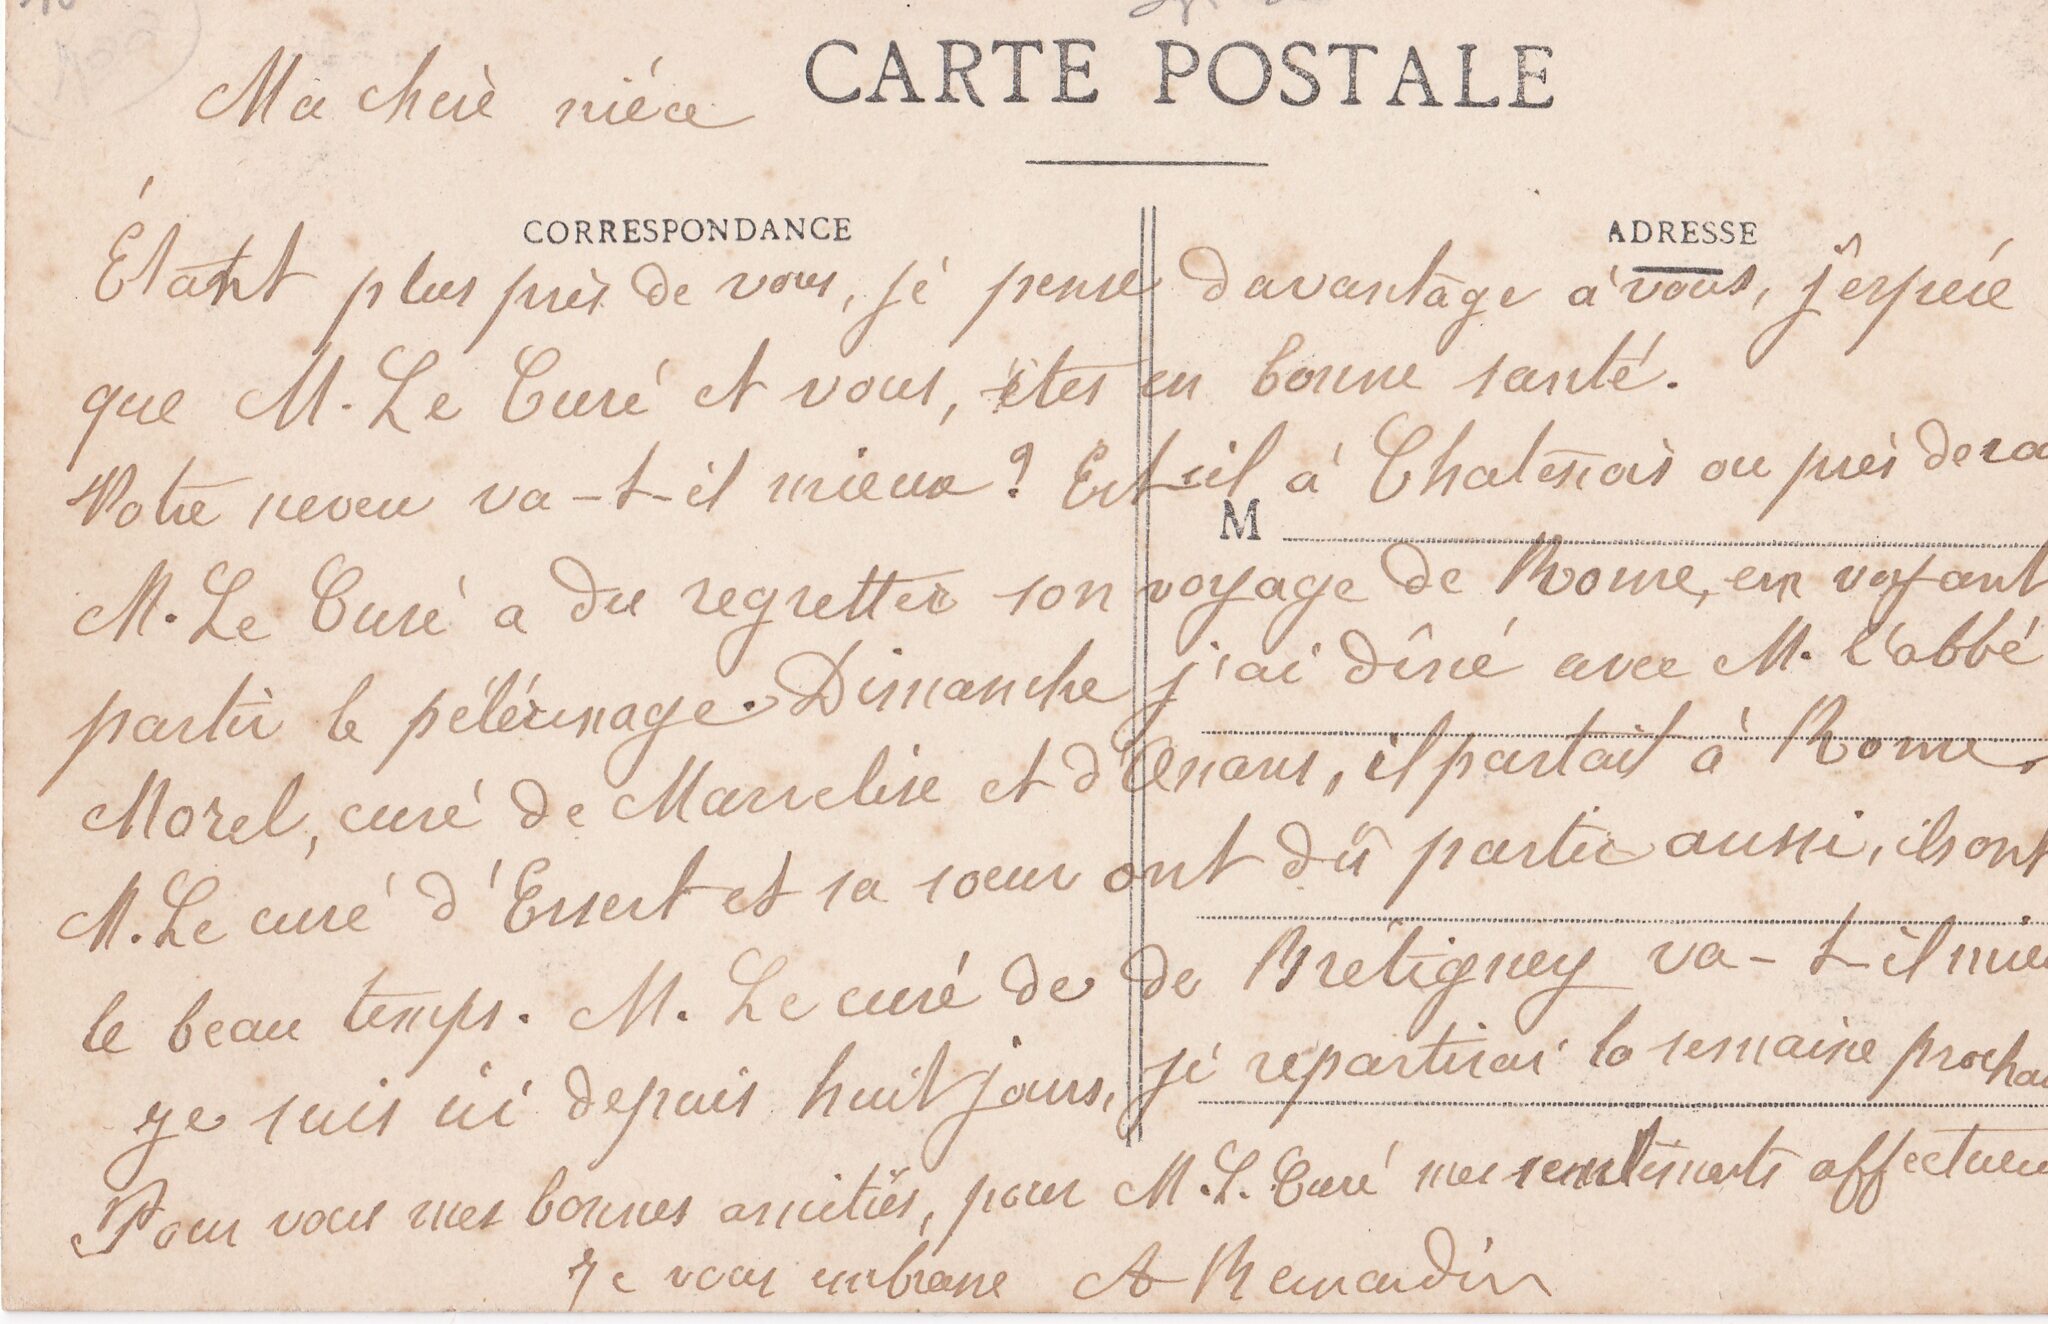 CARTE POSTALE
Ma chère niéce
CORRESPONDANCE
ADRESSE
Étant plus près de vous, je pense davantage à vous, j'espère
que M. Le Curé et vous, êtes en bonne santé.
Votre neveu va-t-il mieux ? Est-il à Chatenois ou près de sa
M
M. Le Curé a du regretter son voyage de Rome, en voyant
partir le pélérinage. Dimanche j'ai dîné avec M. l'abbé
Morel, curé de Marvelise et d'Onans, il partait à Rome.
M. Le curé d'Essert et sa soeur ont dû partir aussi, ils ont
le beau temps. M. Le curé de de Brétigney va-t-il mieu
Je suis ici depuis huit jours, je repartirai la semaine prochai
Pour vous mes bonnes amitiés, pour M. L. Curé mes sentiments affectueu
Je vous embrasse A